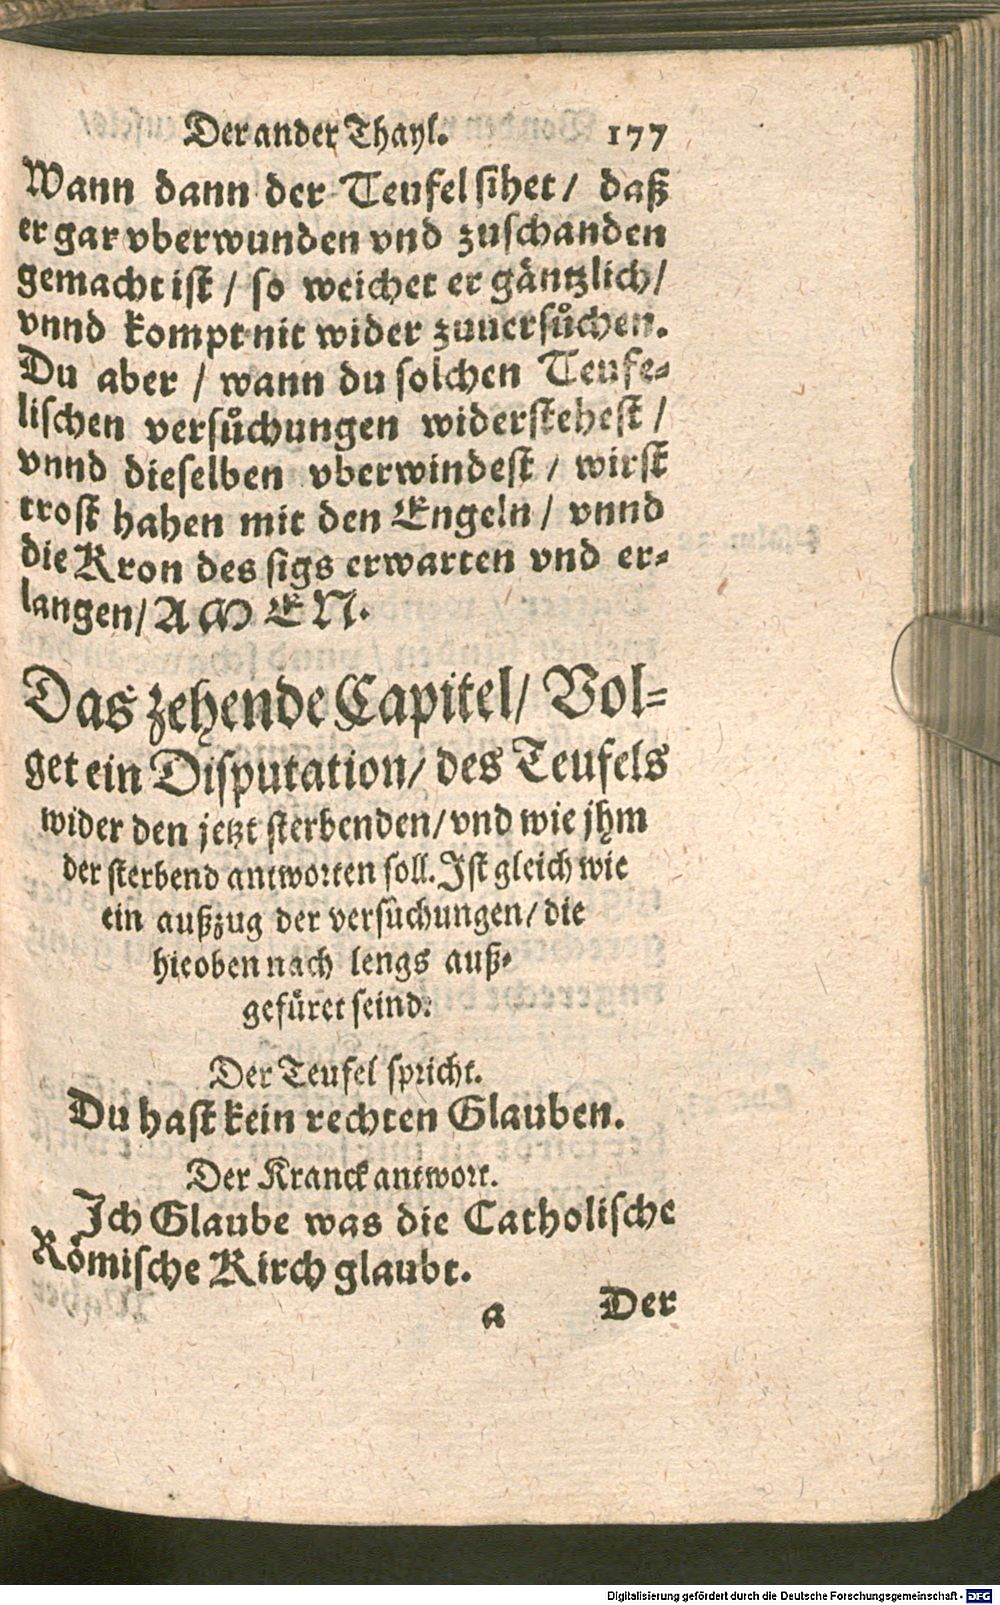 Der ander Thayl. 177
Wann dann der Teufel sihet / daß
er gar vberwunden vnd zuschanden
gemacht ist / so weichet er gäntzlich /
vnnd kompt nit wider zuuersuͦchen.
Du aber / wann du solchen Teufe-
lischen versuͦchungen widerstehest /
vnnd dieselben vberwindest / wirst
trost hahen mit den Engeln / vnnd
die Kron des sigs erwarten vnd er-
langen / AMEN.
Das zehende Capitel / Vol-
get ein Disputation / des Teufels
wider den jetzt sterbenden / vnd wie jhm
der sterbend antworten soll. Ist gleich wie
ein außzug der versuͦchungen / die
hieoben nach lengs auß-
gefuͤret seind.
Der Teufel spricht.
Du hast kein rechten Glauben.
Der Kranck antwort.
Ich Glaube was die Catholische
Roͤmische Kirch glaubt.
a Der
Digitalisierung gefördert durch die Deutsche Forschungsgemeinschaft - DFG